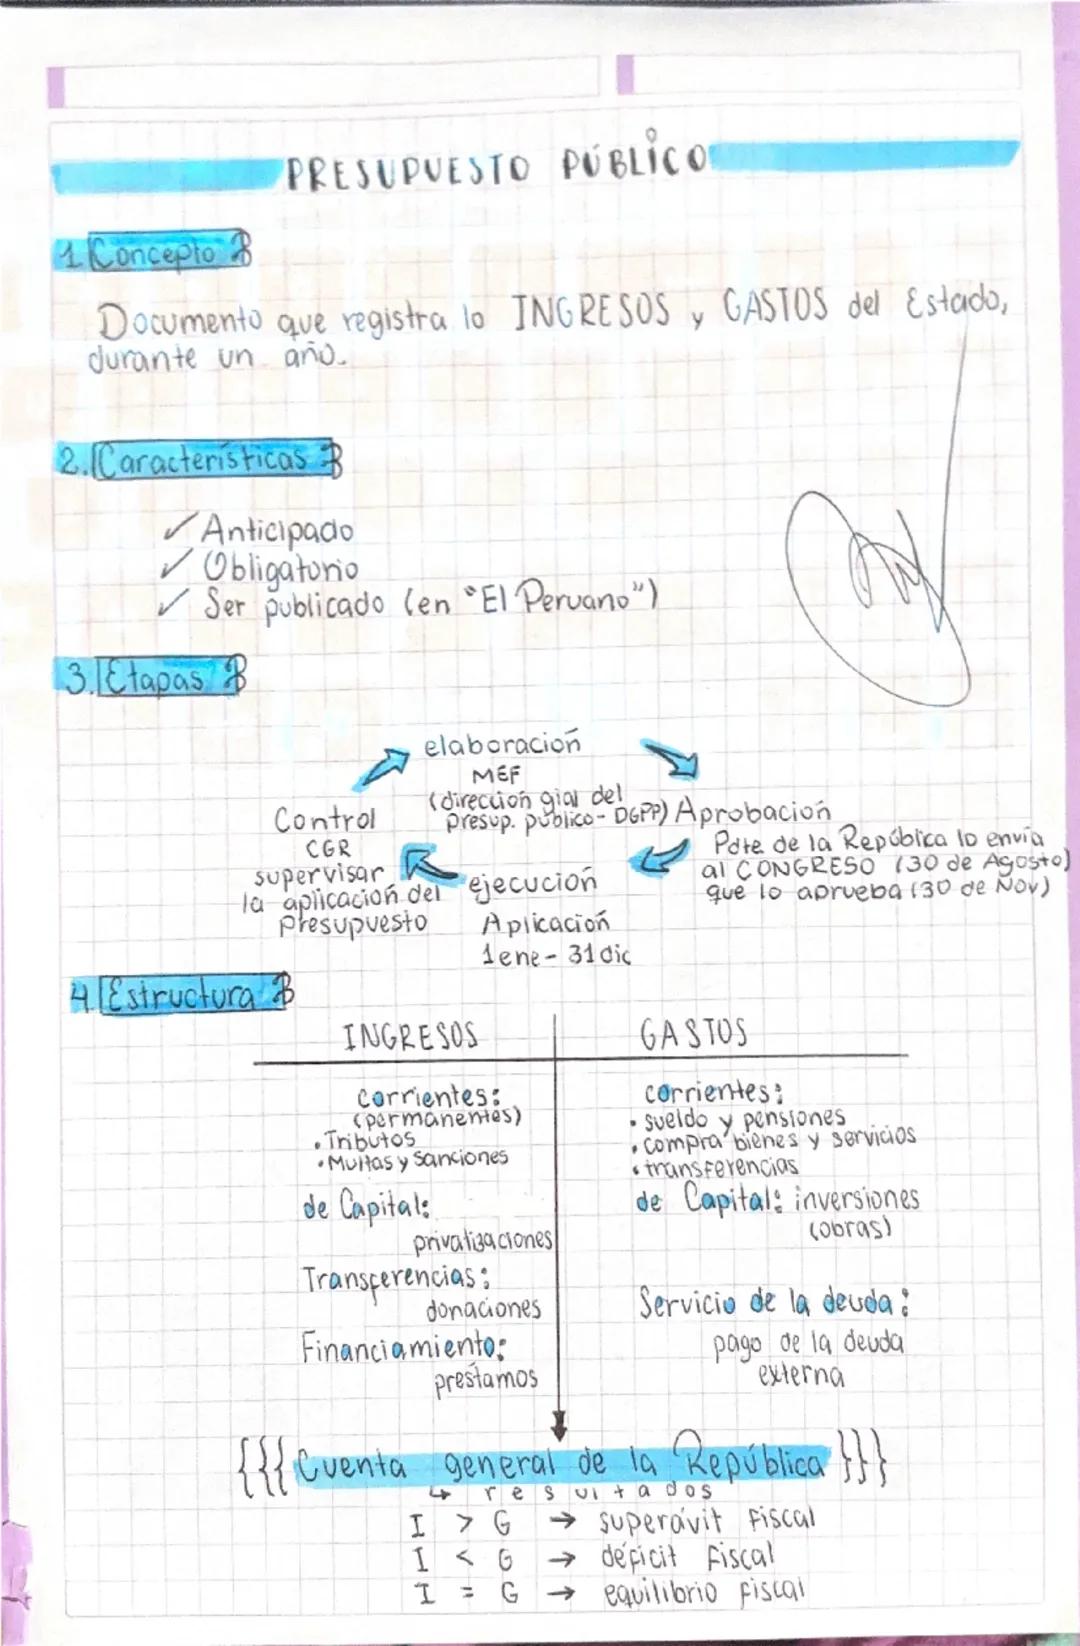 PRESUPUESTO PÚBLICO
1. Concepto
Documento que registra lo INGRESOS y GASTOS del Estado,
durante un año.
2. Características
✓ Anticipado
✓ Obligatorio
✓ Ser publicado (en "El Peruano")
3. Etapas
elaboración
MEF
(dirección gral del
presup. público - DGPP)
Aprobación
Pdte de la República lo envía
al CONGRESO (30 de Agosto)
que lo aprueba (30 de Nov)
ejecución
Aplicación
1ene - 31 dic
Control
CGR
supervisar
la aplicación del
presupuesto
4. Estructura
INGRESOS
corrientes:
(permanentes)
• Tributos
• Multas y Sanciones
de Capital:
privatizaciones
Transferencias:
donaciones
Financiamiento:
préstamos
GASTOS
corrientes:
• sueldo y pensiones
• compra bienes y servicios
• transferencias
de Capital: inversiones
(obras)
Servicio de la deuda:
pago de la deuda
externa
{{{ Cuenta general de la República }}}
↳ resultados
I > G → superávit fiscal
I < G → déficit fiscal
I = G → equilibrio fiscal